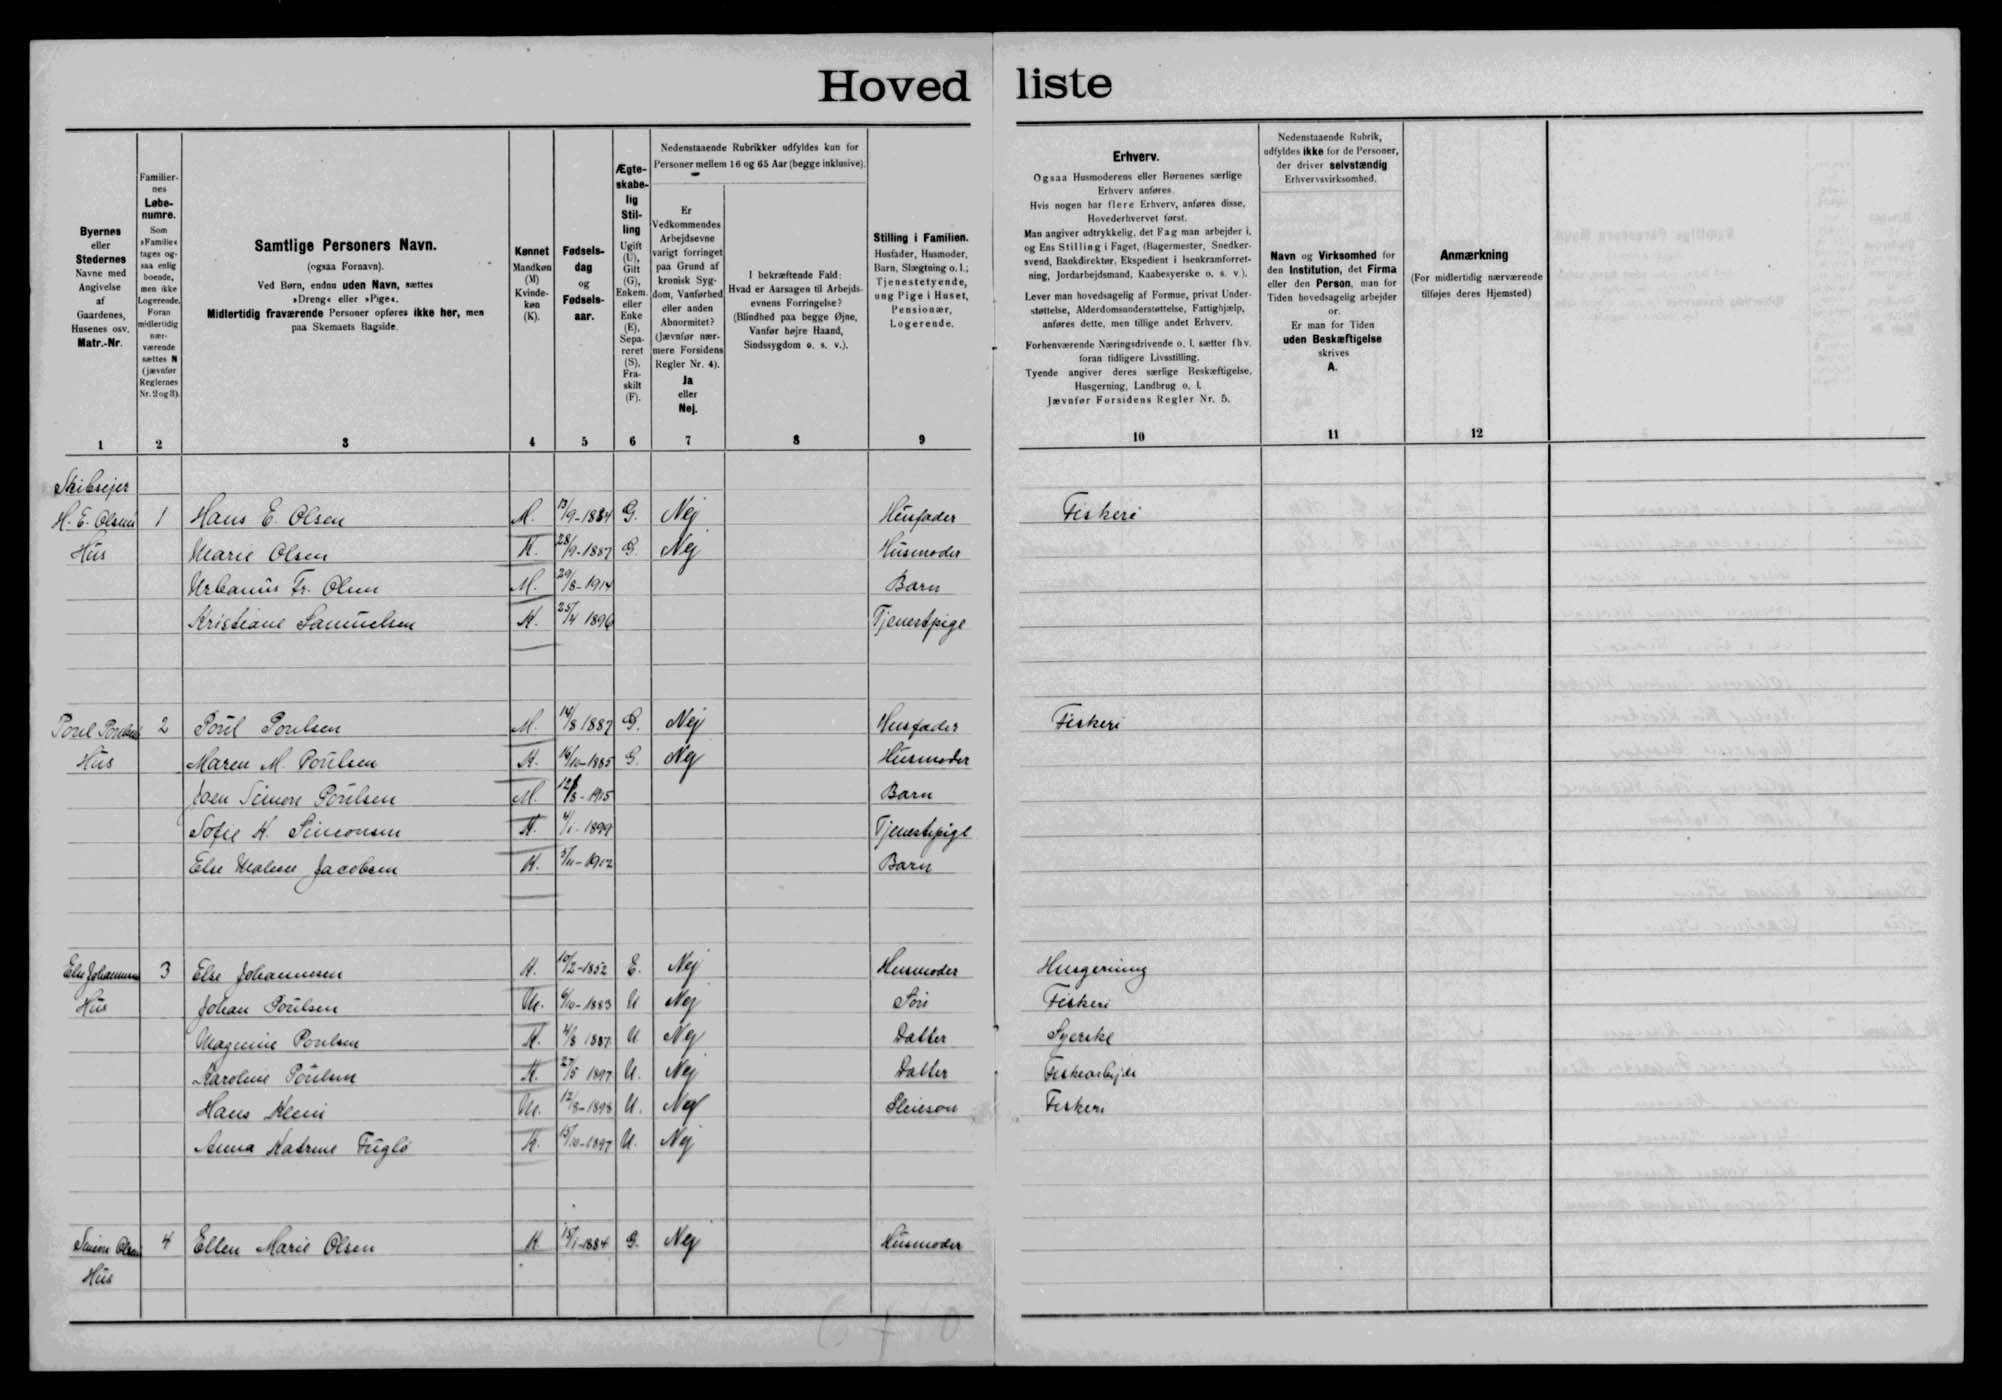 Hovedliste
Byernes
eller
Stedernes
Navne med
Angivelse
af
Gaardenes,
Husenes osv.
Matr.-Nr.
1
Familier-
nes
Løbe-
numre.
Som
»Familie«
tages og-
saa enlig
boende,
men ikke
Logerende.
Foran
midlertidig
nær-
værende
sættes N
(jævnfør
Reglernes
Nr. 2 og 3).
2
Samtlige Personers Navn.
(ogsaa Fornavn).
Ved Børn, endnu uden Navn, sættes
»Dreng« eller »Pige«.
Midlertidig fraværende Personer opføres ikke her, men
paa Skemaets Bagside.
3
Kønnet
Mandkøn
(M)
Kvinde-
køn
(K).
4
Fødsels-
dag
og
Fødsels-
aar.
5
Ægte-
skabe-
lig
Stil-
ling
Ugift
(U),
Gift
(G),
Enkem.
eller
Enke
(E),
Sepa-
reret
(S),
Fra-
skilt
(F).
6
Nedenstaaende Rubrikker udfyldes kun for
Personer mellem 16 og 65 Aar (begge inklusive).
Er
Vedkommendes
Arbejdsevne
varigt forringet
paa Grund af
kronisk Syg-
dom, Vanførhed
eller anden
Abnormitet?
(Jævnfør nær-
mere Forsidens
Regler Nr. 4).
Ja
eller
Nej.
7
I bekræftende Fald:
Hvad er Aarsagen til Arbejds-
evnens Forringelse?
(Blindhed paa begge Øjne,
Vanfør højre Haand,
Sindssygdom o. s. v.).
8
Stilling i Familien.
Husfader, Husmoder,
Barn, Slægtning o. l.;
Tjenestetyende,
ung Pige i Huset,
Pensionær,
Logerende.
9
Erhverv.
Ogsaa Husmoderens eller Børnenes særlige
Erhverv anføres.
Hvis nogen har flere Erhverv, anføres disse,
Hovederhvervet først.
Man angiver udtrykkelig, det Fag man arbejder i,
og Ens Stilling i Faget, (Bagermester, Snedker-
svend, Bankdirektør, Ekspedient i Isenkramforret-
ning, Jordarbejdsmand, Kaabesyerske o. s. v.).
Lever man hovedsagelig af Formue, privat Under-
støttelse, Alderdomsunderstøttelse, Fattighjælp,
anføres dette, men tillige andet Erhverv.
Forhenværende Næringsdrivende o. l. sætter fhv.
foran tidligere Livsstilling.
Tyende angiver deres særlige Beskæftigelse,
Husgerning, Landbrug o. l.
Jævnfør Forsidens Regler Nr. 5.
10
Nedenstaaende Rubrik,
udfyldes ikke for de Personer,
der driver selvstændig
Erhvervsvirksomhed.
Navn og Virksomhed for
den Institution, det Firma
eller den Person, man for
Tiden hovedsagelig arbejder
for.
Er man for Tiden
uden Beskæftigelse
skrives
A.
11
Anmærkning
(For midlertidig nærværende
tilføjes deres Hjemsted)
12
Skibsejer
H. E. Olsens 1 Hans E. Olsen M. 13/9-1884 G. Nej Husfader Fiskeri
Hus Marie Olsen K. 28/9-1887 G. Nej Husmoder
Urbanus Fr. Olsen M. 29/8-1914 Barn
Kristiane Samuelsen K. 25/4 1896 Tjenestpige
Poul Poulsens 2 Poul Poulsen M. 14/8 1887 G. Nej Husfader Fiskeri
Hus Maren M. Poulsen K. 16/10-1885 G. Nej Husmoder
Joen Simon Poulsen M. 1915 Barn
Sofie K. Simonsen K. 4/1-1899 Tjenestepige
Else Malene Jacobsen K. 5/11-1902 Barn
Else Johannesens 3 Else Johannesen K. 10/2-1852 E. Nej Husmoder Husgerning
Hus Johan Poulsen M. 6/10-1883 U Nej Søn Fiskeri
Magnine Poulsen K. 4/8 1887 U Nej Datter Syerske
Karoline Poulsen K. 27/5 1897 U. Nej Datter Fiskearbejde
Hans Klein M. 12/8-1898 U. Nej Fiskeri
Anna Katrine Fuglø K. 15/10-1897 U. Nej
Simon Olsens 4 Ellen Marie Olsen K 15/1-1884 G. Nej Husmoder
Hus